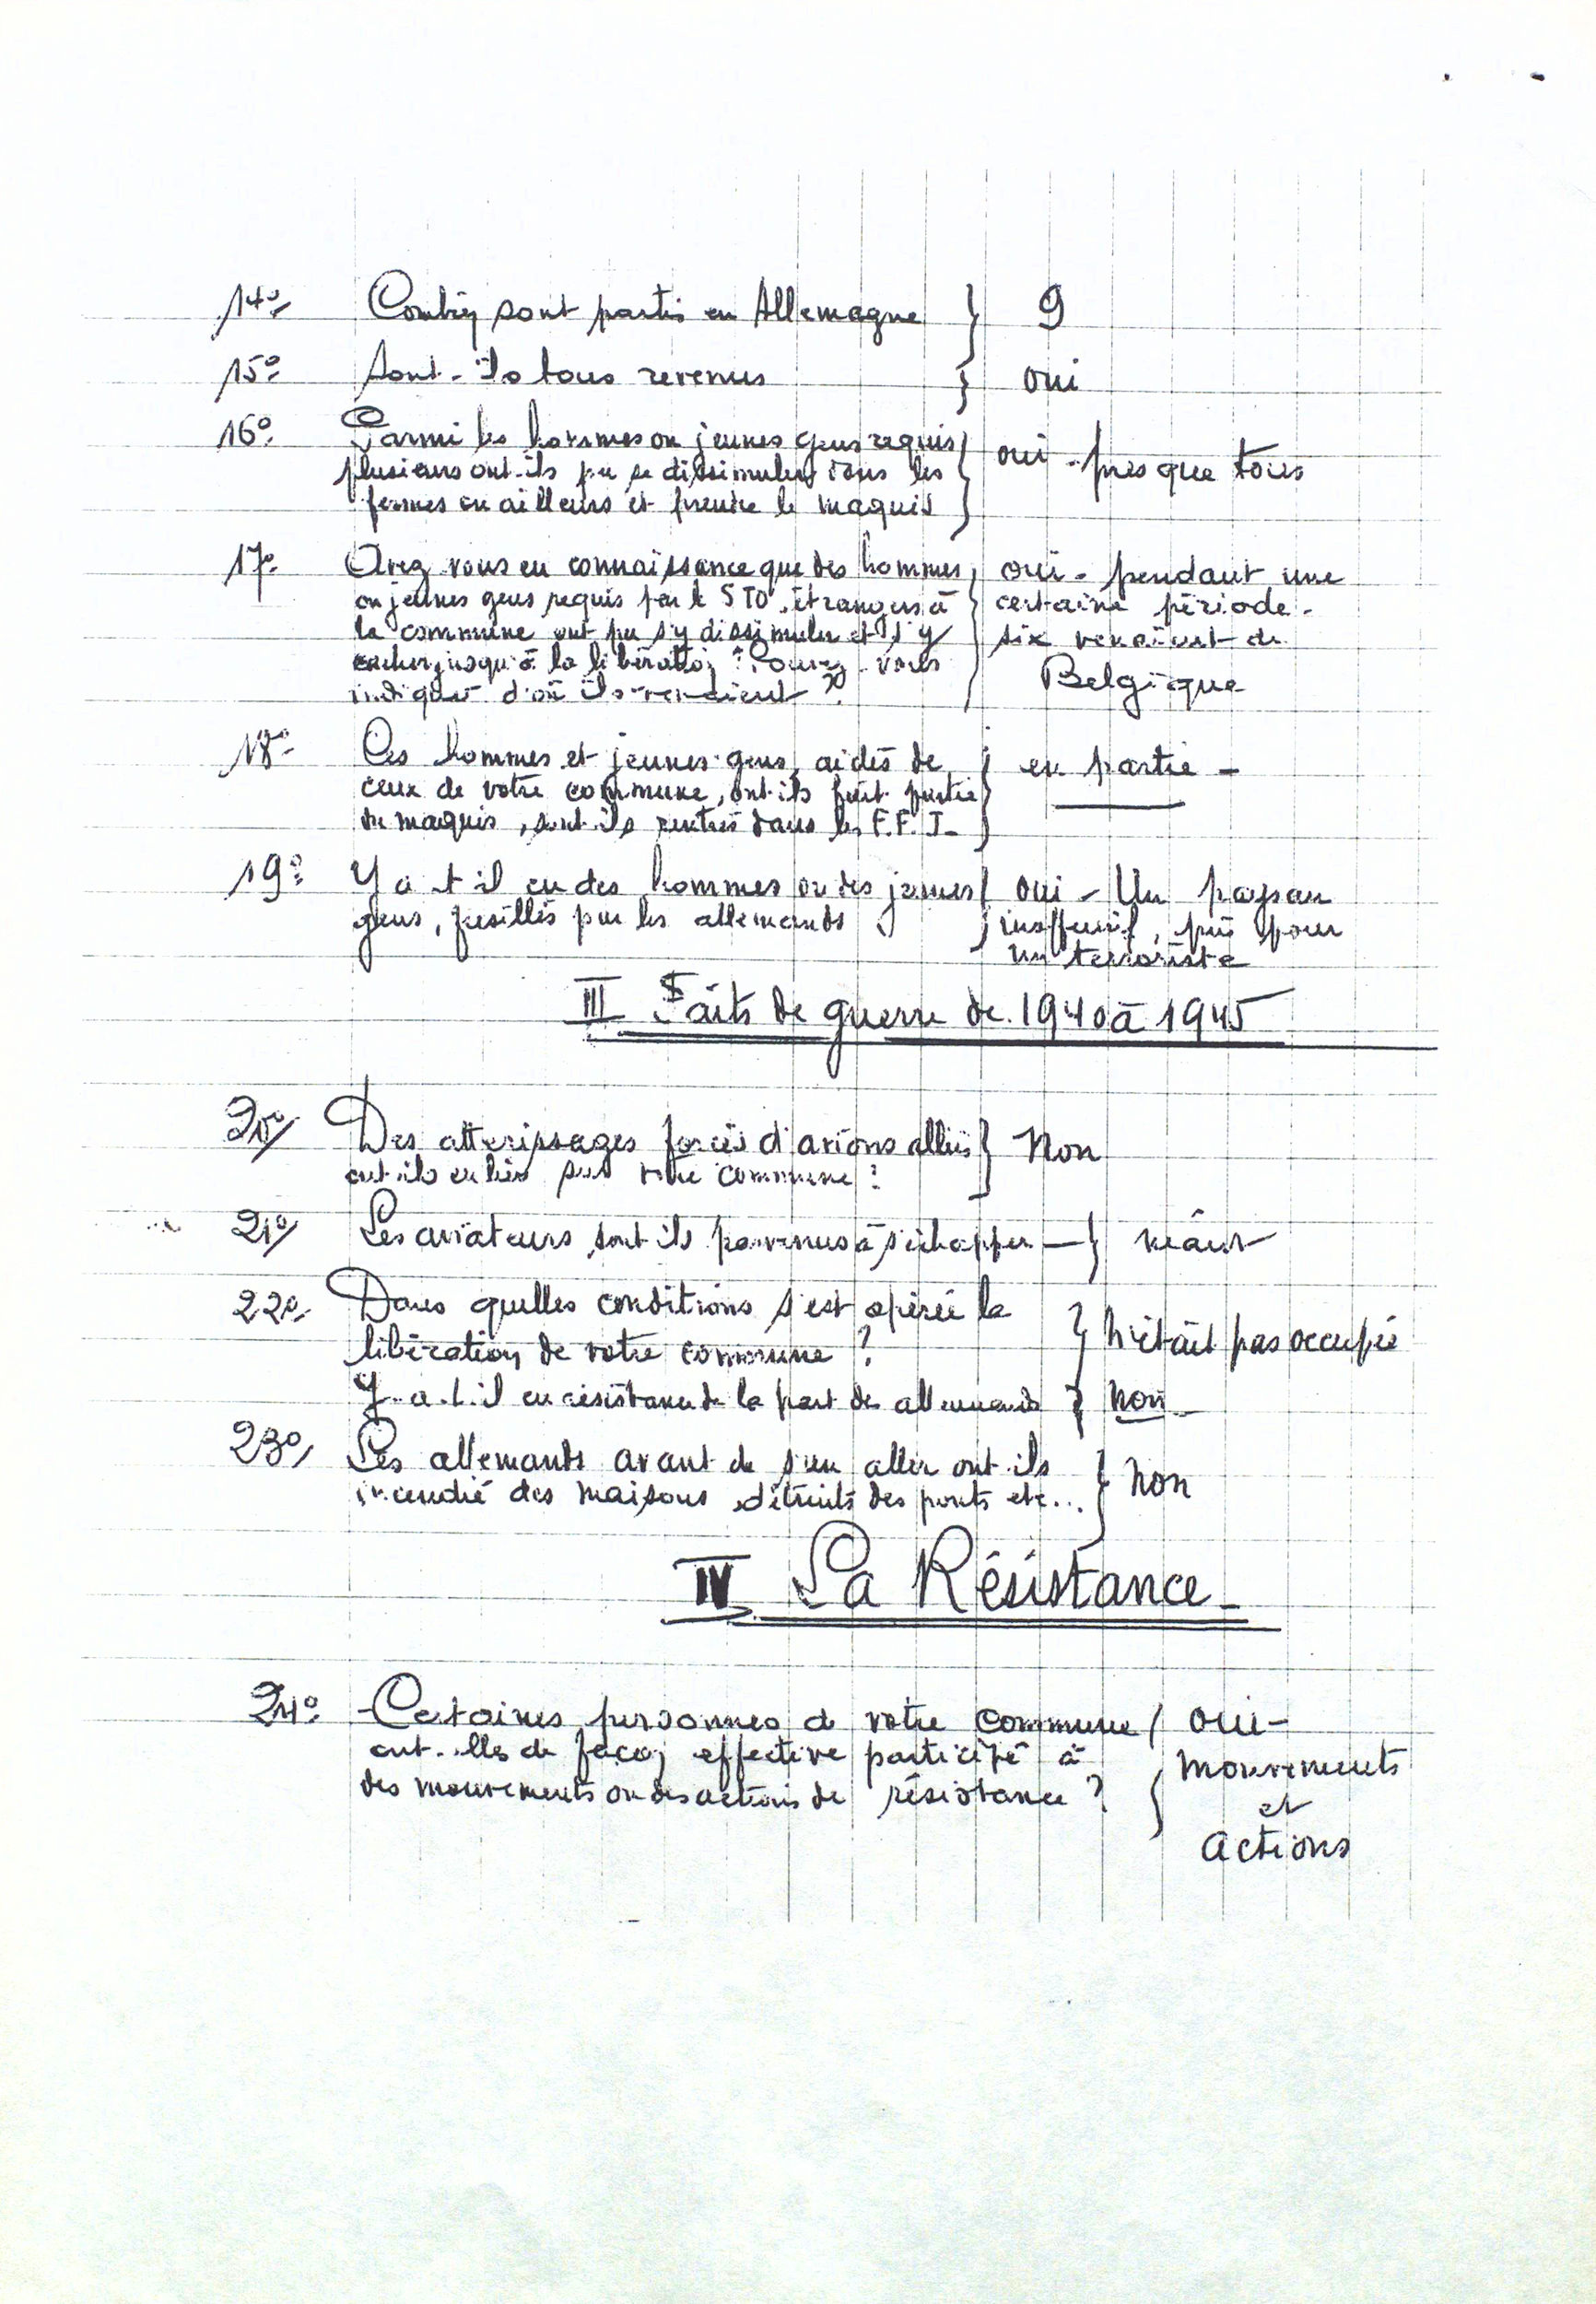 14° Combien sont partis en Allemagne } 9
15° Sont-ils tous revenus } oui
16° Parmi les hommes ou jeunes gens requis
plusieurs ont-ils pu se dissimuler dans les } oui - presque tous
fermes ou ailleurs et prendre le maquis
17° Avez vous eu connaissance que des hommes } oui - pendant une
ou jeunes gens requis par le STO, étrangers à certaine période -
la commune ont pu s'y dissimuler et s'y six venaient de
cacher jusqu'à la libération ? Pouvez-vous Belgique
indiquer d'où ils venaient ?
18° Ces hommes et jeunes gens, aidés de } en partie -
ceux de votre commune, ont-ils fait partie
du maquis, sont-ils rentrés dans les F.F.I-
19° Y a t il eu des hommes ou des jeunes } oui - Un paysan
gens, fusillés par les allemands inoffensif, pris pour
un terroriste
III Faits de guerre de 1940 à 1945
20° Des atterissages forcés d'avions alliés } Non
ont-ils eu lieu sur votre commune ?
21° Les aviateurs sont ils parvenus à s'échapper — } néant
22° Dans quelles conditions s'est opérée la } n'était pas occupée
libération de votre commune ?
Y-a-t-il eu résistance de la part des allemands } non -
23° Les allemands avant de s'en aller ont-ils } non
incendié des maisons, détruits des ponts etc...
IV La Résistance -
24° - Certaines personnes de votre commune } oui -
ont-elles de façon effective participé à mouvements
des mouvements ou des actions de résistance ? et
actions